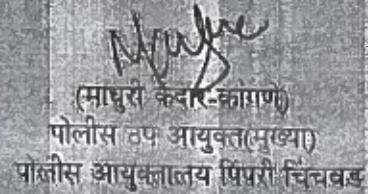 (माधुरी केदार-कांगणे)
पोलीस उप आयुक्त(मुख्या)
पोलीस आयुक्तालय पिंपरी चिंचवड